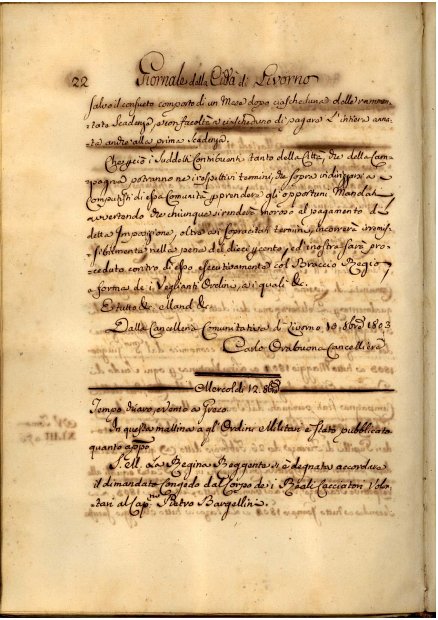 22 Giornale della Città di Livorno
salvo il consueto comporto di un Mese dopo ciascheduna delle rammen-
tate Scadenze, e con facoltà a ciascheduno di pagare l'intiera anna-
ta anche alla prima scadenza.
Che però i suddetti Contribuenti tanto della Città, che della Cam-
pagna potranno ne i respettivi termini, che sopra indirizzarsi a
Computisti di essa Comunità a prendere gli opportuni Mandati
avvertendo che chiunque si renderà moroso al pagamento di
detta Imposizione, oltre ai sopracitati termini, incorrerà irremis-
sibilmente nella pena del dieci per cento, ed inoltre sarà pro-
ceduto contro di esso esecutivamente col Braccio Regio
a forma de i Veglianti Ordini, ai quali &c.
E tutto &c. Mand. &c.
Dalla Cancelleria Comunitativa di Livorno 10. 8bre 1803
Carlo Orabuona Cancelliere
Mercoldì 12. 8bre
Tempo chiaro, e vento a Greco
In questa mattina a gl'Ordini Militari è stato pubblicato
quanto appo
S. M. la Regina Reggente si è degnata accordare
il dimandato Congedo dal Corpo de i Reali Cacciatori Volon-
tari al Capno Pietro Bargellini.